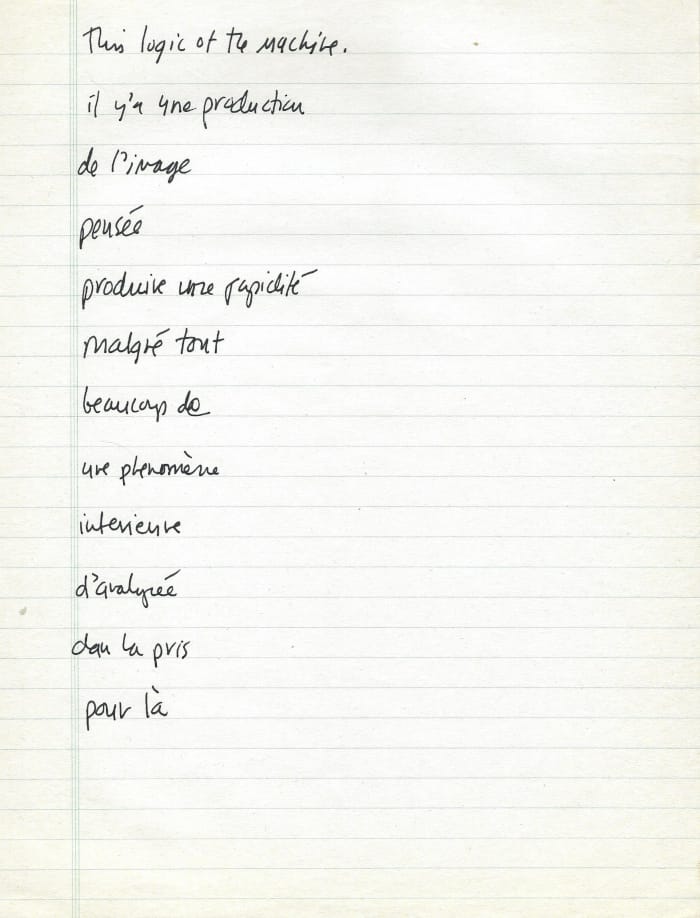 This logic of the machine.
il y'a une production
de l'image
pensée
produire une rapidité
malgré tout
beaucoup de
une phenomène
interieure
d'analyseé
dan la pris
pour là